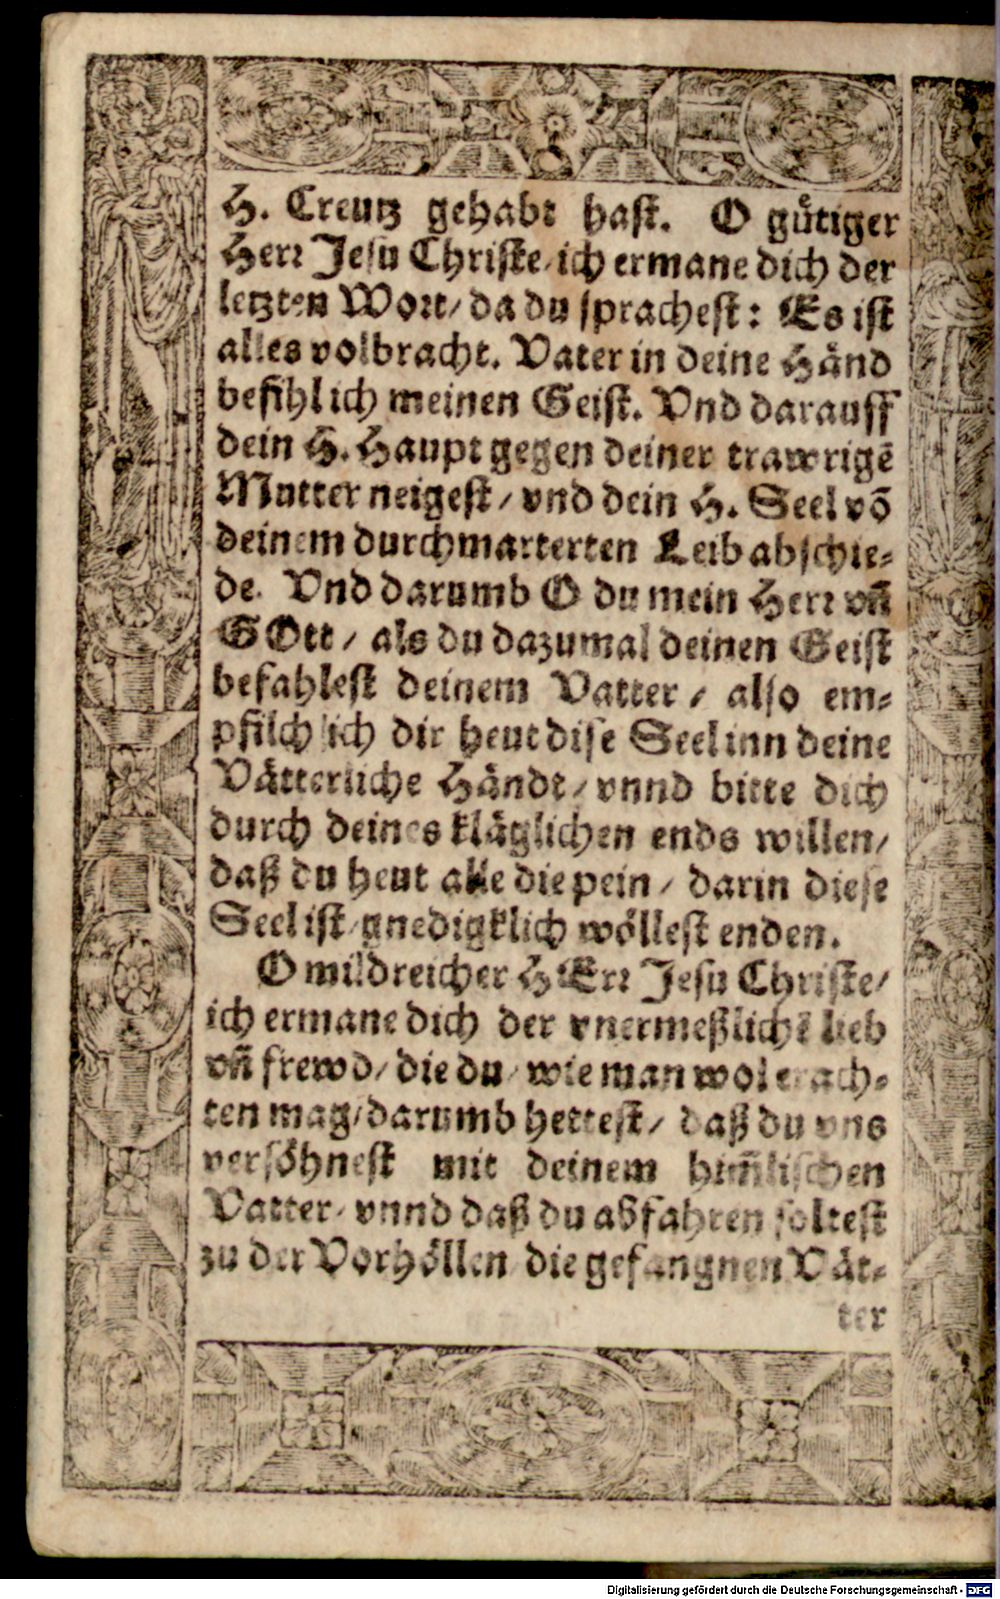 H. Creutz gehabt hast. O gütiger
Herr Jesu Christe, ich ermane dich der
letzten Wort/ da du sprachest: Es ist
alles volbracht. Vater in deine Händ
befihl ich meinen Geist. Vnd darauff
dein H. Haupt gegen deiner trawrigē
Mutter neigest/ vnd dein H. Seel vō
deinem durchmarterten Leib abschie-
de. Vnd darumb O du mein Herr vn̄
GOtt/ als du dazumal deinen Geist
befahlest deinem Vatter/ also em-
pfilch ich dir heut dise Seel inn deine
Vätterliche Händt/ vnnd bitte dich
durch deines kläglichen ends willen/
daß du heut alle die pein/ darin diese
Seel ist/ gnedigklich wöllest enden.
O mildreicher HErr Jesu Christe/
ich ermane dich der vnermeßlichē lieb
vn̄ frewd/ die du/ wie man wol erach-
ten mag/ darumb hettest/ daß du vns
versöhnest mit deinem him̄lischen
Vatter/ vnnd daß du abfahren soltest
zu der Vorhöllen die gefangnen Vät-
ter
Digitalisierung gefördert durch die Deutsche Forschungsgemeinschaft - DFG